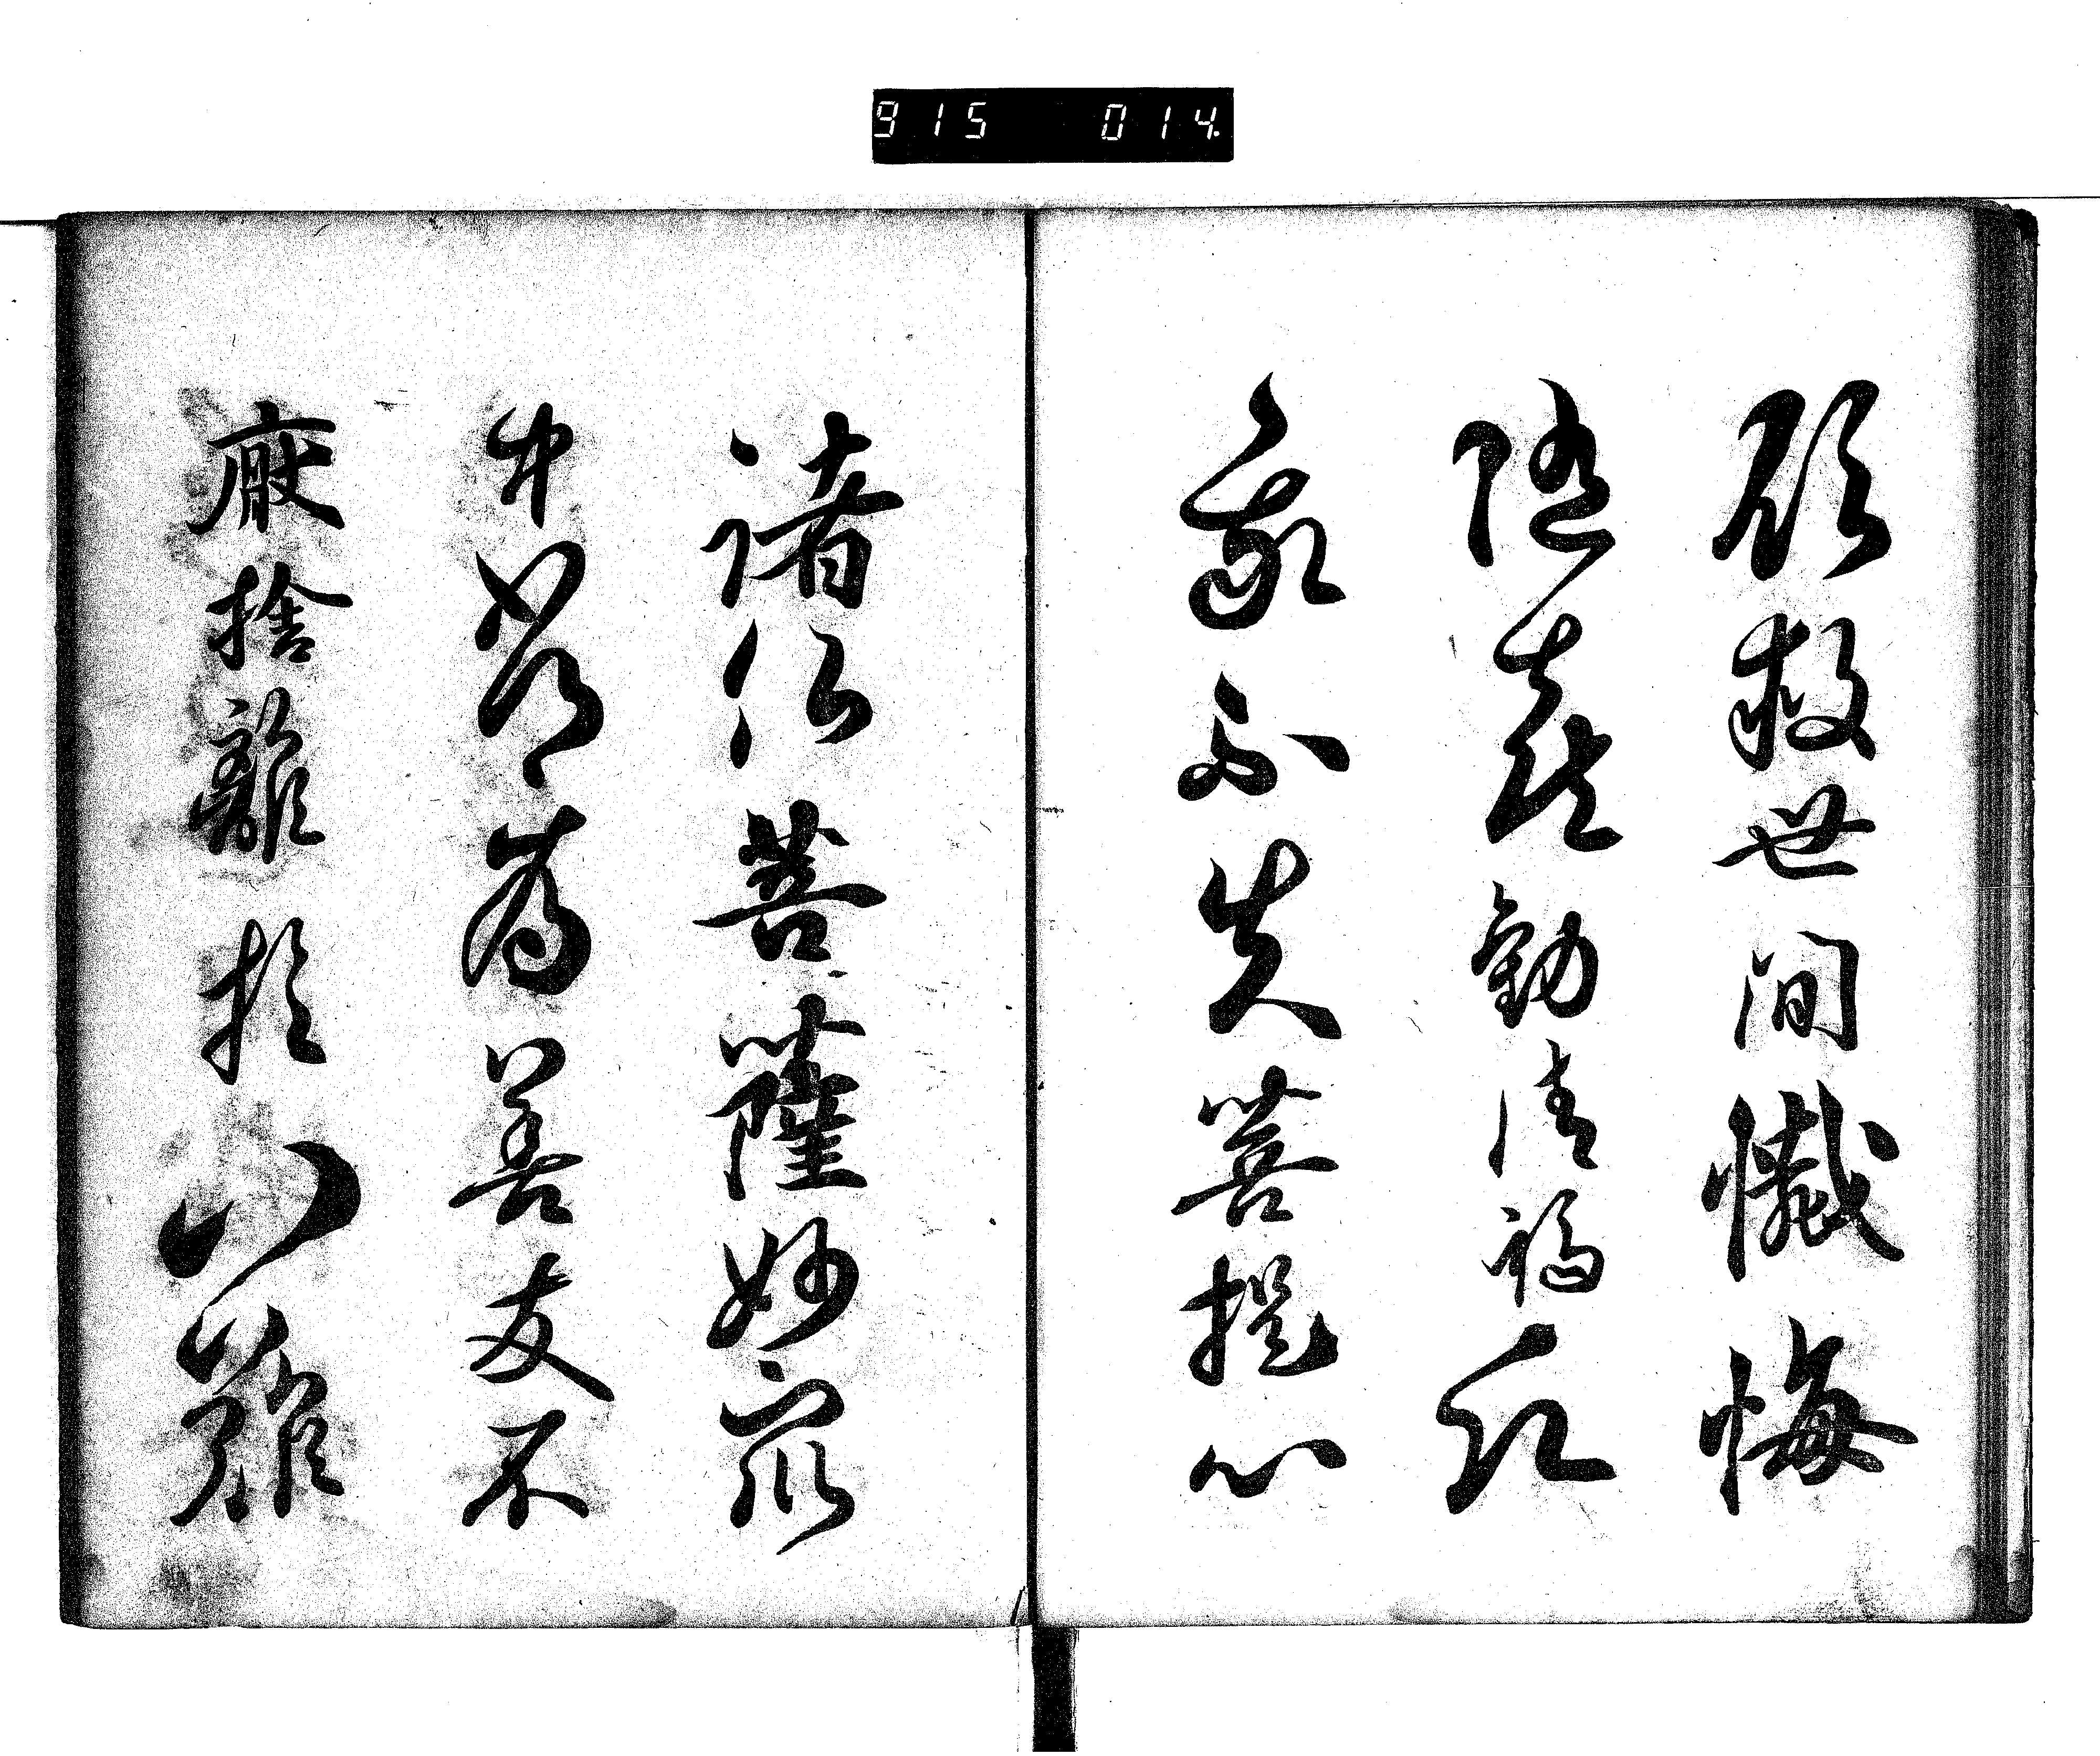 915 014.
願救世間懺悔
随喜勧請福願
我不失菩提心
諸仏菩薩妙衆
中常為善友不
厭捨離於八難